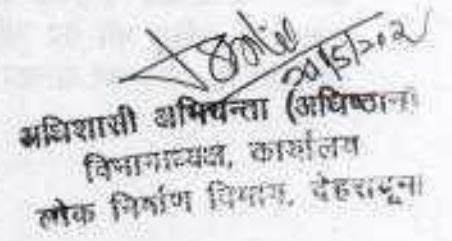 20/5/202
अधिशासी अभियन्ता (अधिष्ठान)
विभागाध्यक्ष, कार्यालय
लोक निर्माण विभाग, देहरादून।